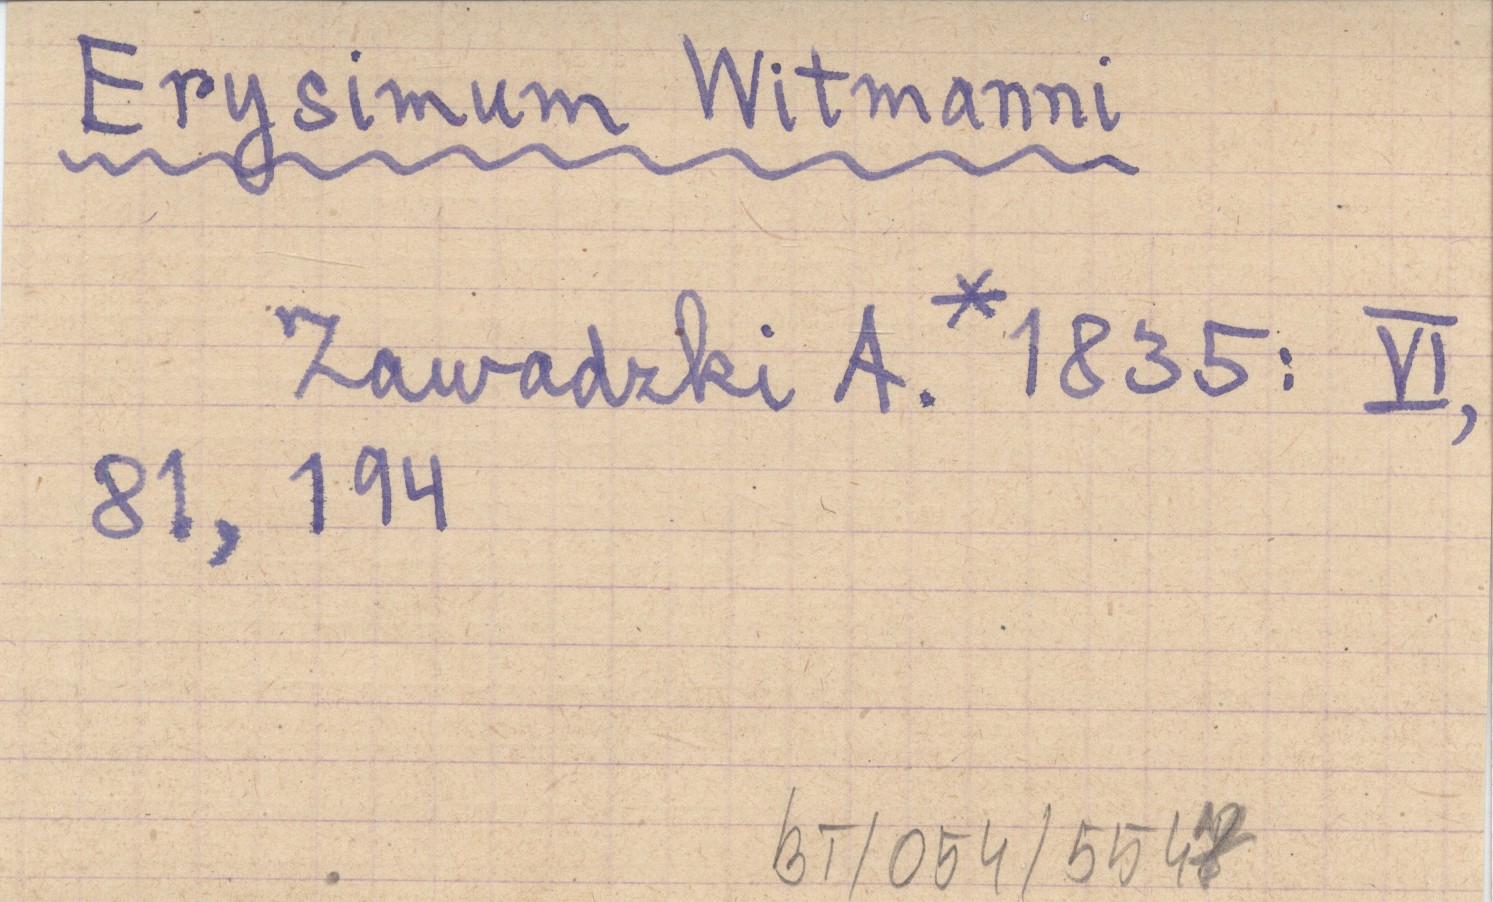 Erysimum Witmanni
Zawadzki A.* 1835: VI,
81, 194